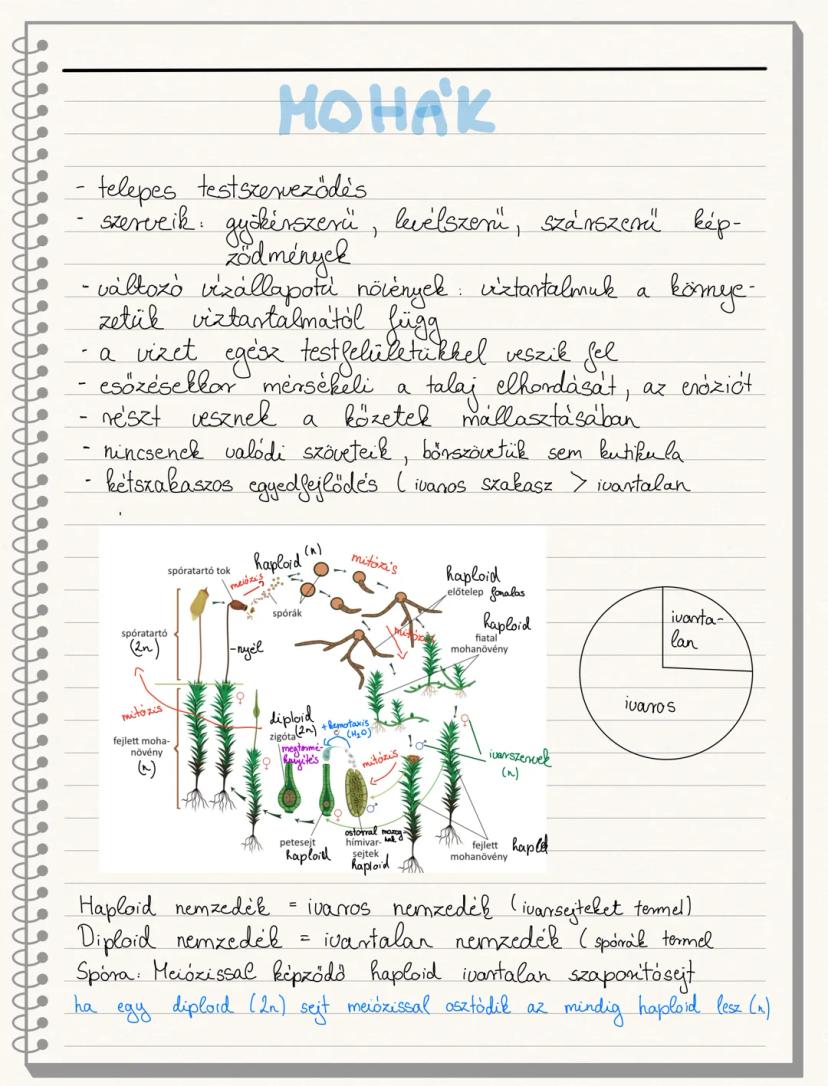 MOHÁK
- telepes testszerveződés
- szerveik: gyökérszerű, levélszerű, szárszerű kép-
ződmények
- változó vízállapotú növények: víztartalmuk a környe-
zetük víztartalmától függ
- a vizet egész testfelületükkel veszik fel
- esőzésekkor mérsékeli a talaj elhordását, az eróziót
- részt vesznek a kőzetek mállasztásában
- nincsenek valódi szöveteik, bőrszövetük sem kutikula
- kétszakaszos egyedfejlődés (ivaros szakasz > ivartalan
spóratartó tok
meiózis
haploid (n)
mitózis
spórák
haploid
előtelep fonalas
haploid
fiatal
mohanövény
mitózis
spóratartó
(2n)
-nyél
mitózis
fejlett moha-
növény
(n)
diploid
(2n)
zigóta
megtermé-
kenyítés
kemotaxis
(H2O)
mitózis
ivarszervek
(n)
petesejt
haploid
ostorral mozog
nak
hímivar-
sejtek
haploid
fejlett
mohanövény
haploid
ivarta-
lan
ivaros
Haploid nemzedék = ivaros nemzedék (ivarsejteket termel)
Diploid nemzedék = ivartalan nemzedék (spórák termel
Spóra: Meiózissal képződő haploid ivartalan szaporítósejt
ha egy diploid (2n) sejt meiózissal osztódik az mindig haploid lesz (n)